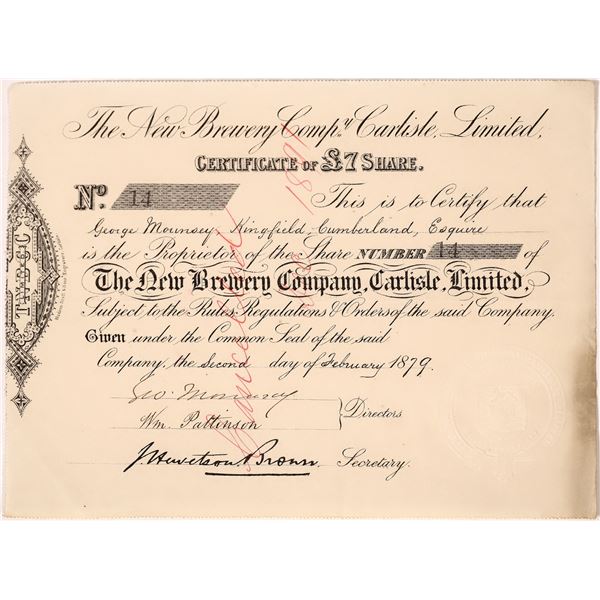 The New Brewery Comp.y Carlisle, Limited,
CERTIFICATE OF £7 SHARE.
No. 14 This is to Certify that
George Mounsey Kingfield, Cumberland, Esquire
is the Proprietor of the Share NUMBER 14 of
The New Brewery Company, Carlisle, Limited,
Subject to the Rules, Regulations & Orders of the said Company.
Given under the Common Seal of the said
Company, the Second day of February 1879.
Geo. Mounsey
Wm. Pattinson
Directors
J. Hewetson Brown. Secretary.
Cancelled